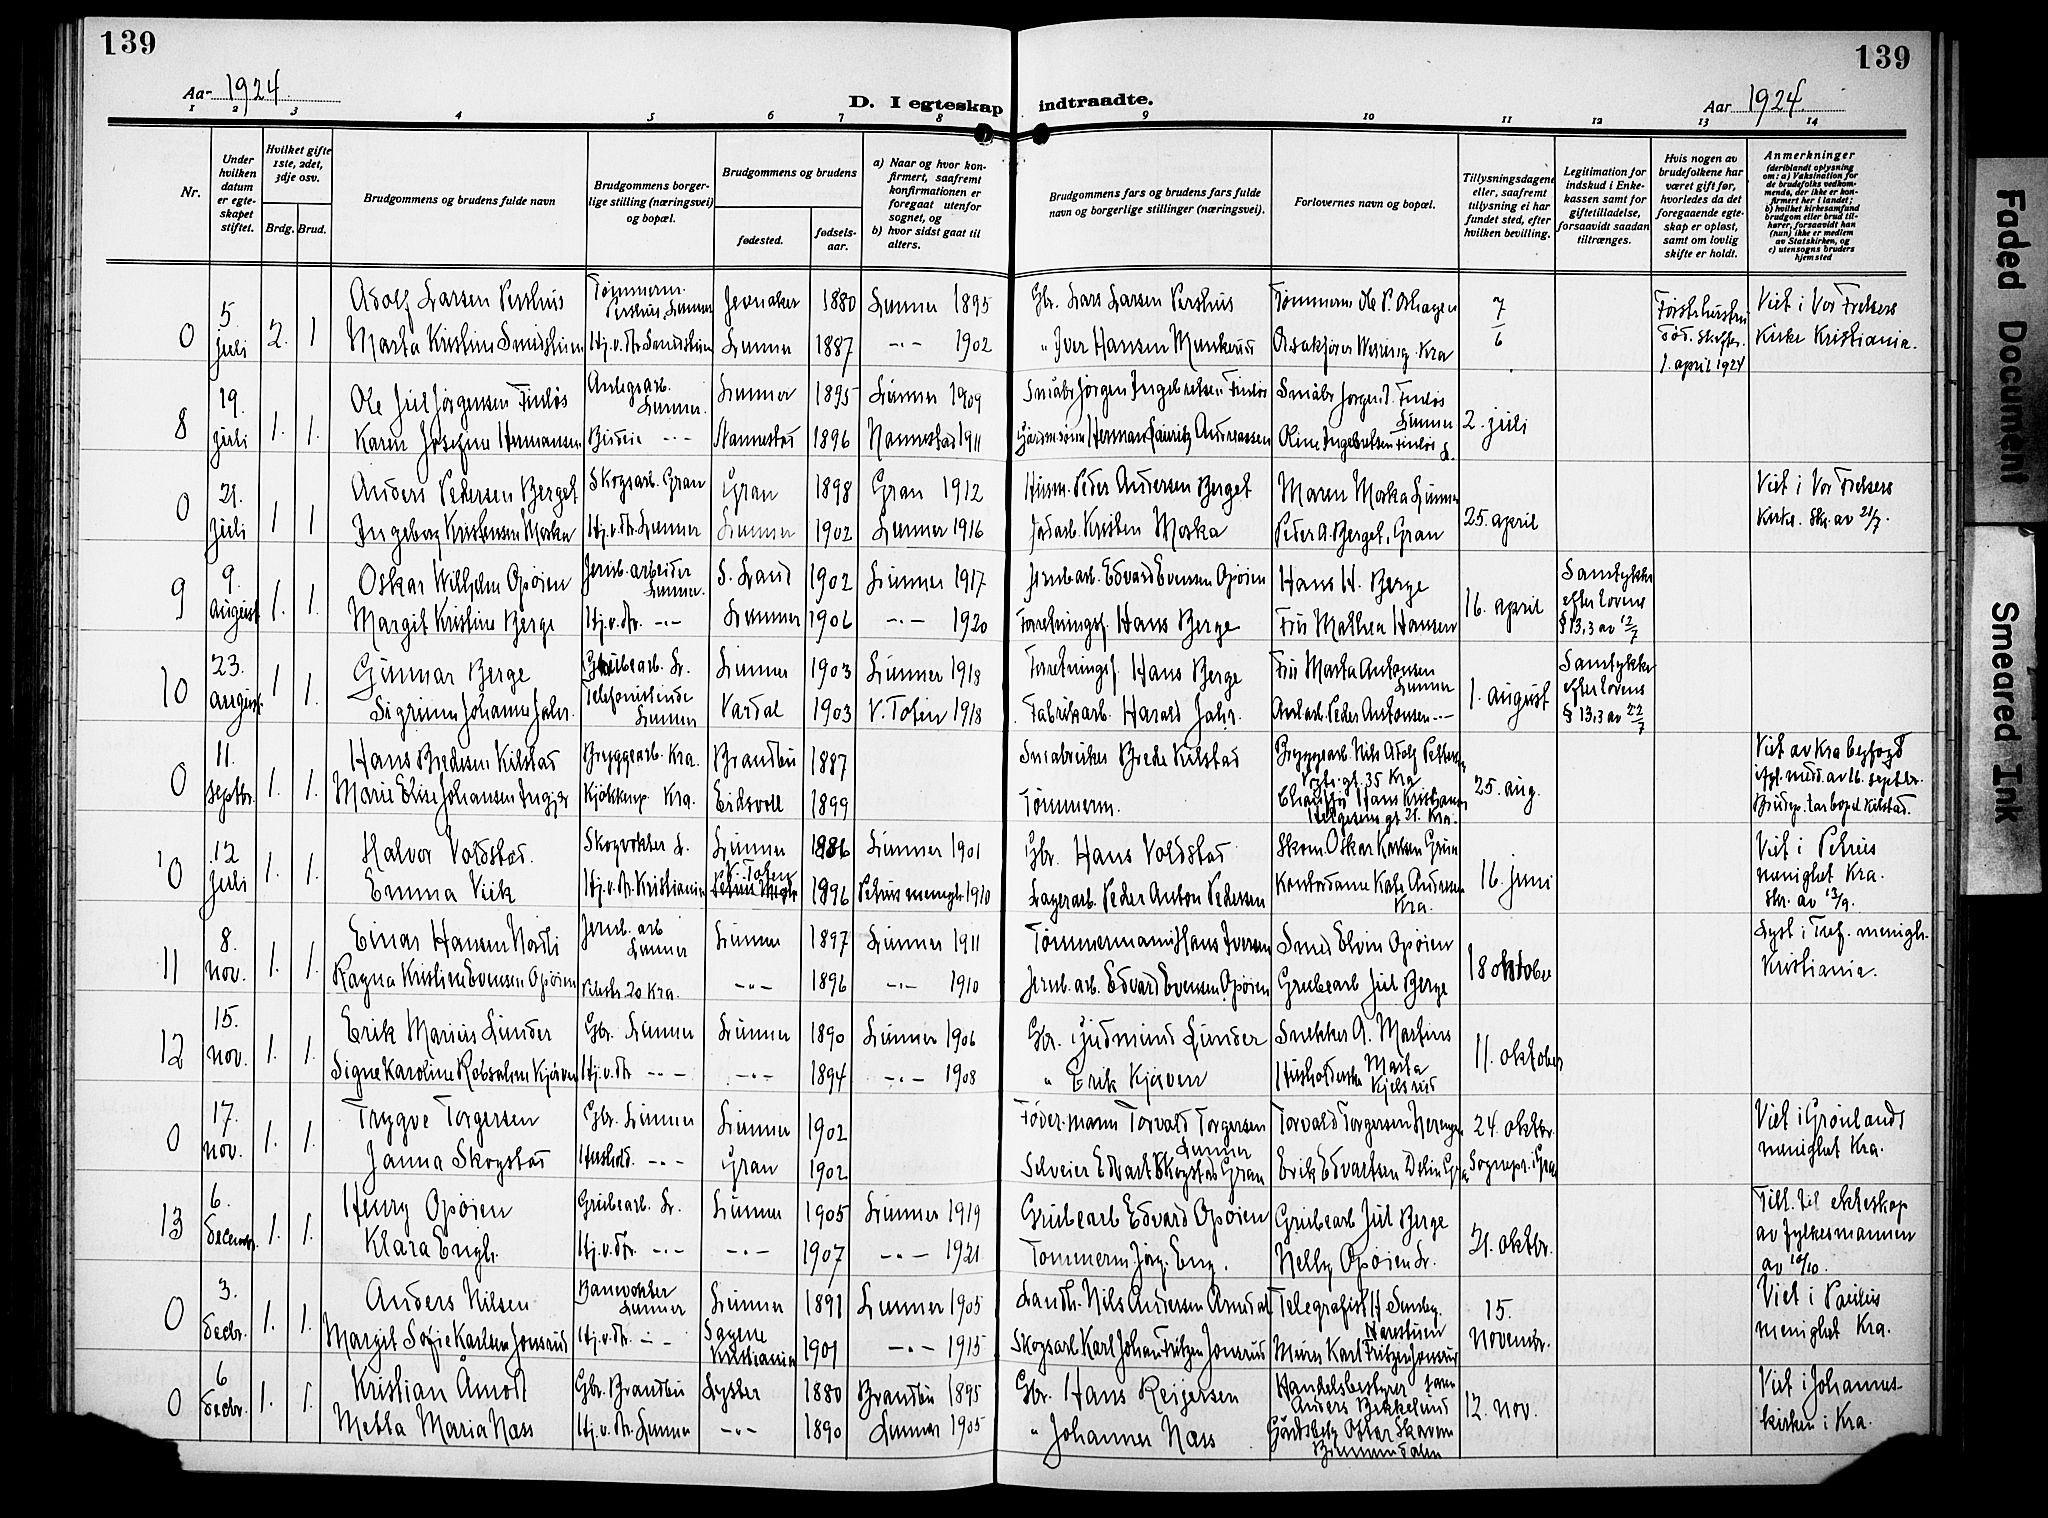 139
139
Aar 1924.
D. I egteskap indtraadte.
Aar 1924.
1 2 3 4 5 6 7 8 9 10 11 12 13 14
Nr.
Under hvilken datum er egteskapet stiftet.
Hvilket gifte 1ste, 2det, 3dje osv.
Brdg. Brud.
Brudgommens og brudens fulde navn
Brudgommens borgerlige stilling (næringsvei) og bopæl.
Brudgommens og brudens
fødested.
fødselsaar.
a) Naar og hvor konfirmert, saafremt konfirmationen er foregaat utenfor sognet, og
b) hvor sidst gaat til alters.
Brudgommens fars og brudens fars fulde navn og borgerlige stillinger (næringsvei).
Forlovernes navn og bopæl.
Tillysningsdagene eller, saafremt tillysning ei har fundet sted, efter hvilken bevilling.
Legitimation for indskud i Enkekassen samt for giftetilladelse, forsaavidt saadan tiltrænges.
Hvis nogen av brudefolkene har været gift før, hvorledes da det foregaaende egteskap er opløst, samt om lovlig skifte er holdt.
Anmerkninger (deriblandt oplysning om: a) Vaksination for de brudefolks vedkommende, der ikke er konfirmert her i landet; b) hvilket kirkesamfund brudgom eller brud tilhører, forsaavidt han (hun) ikke er medlem av Statskirken, og c) utensogns bruders hjemsted
0 5. juli 2. 1 Adolf Larsen Pershus Tømmerm. Pershus, Lunner Jevnaker 1880 Lunner 1895 Gbr. Lars Larsen Pershus Tømmerm Ole P. Oshagen 7/6 Viet i Vor Frelsers
Marta Kristine Smedstuen Hj.v. dr. Lunner 1887 -"- 1902 " Iver Hansen Munkerud Kra Død. 1. april 1924 Kirke Kristiania.
8 19. juli 1. 1. Ole Juel Jørgensen Finløs Anlegsarb. Lunner. Lunner 1895 Lunner 1909 Småbr Jørgen Ingebretsen Finløs Småbr Jørgen I. Finløs Lunner 2. juli
Karen Josefine Hermansen Budeie -"- Nannestad 1896 Nannestad 1911 Herman Andreassen Oline Ingebretsen Finløs L.
0 21. juli 1 1 Anders Pedersen Berget Skogsarb. Gran Gran 1898 Gran 1912 Husm. Peder Andersen Berget Maren Morka Lunner 25. april Viet i Vor Frelsers
Ingeborg Kristensen Morka Hj.v. dr. Lunner Lunner 1902 Lunner 1916 Jordarb. Kristen Morka Peder A. Berget, Gran Kirke. Skr. av 21/7.
9 9. august 1. 1. Oskar Wilhelm Opøien Jernb. arbeider Lunner. S. Land 1902 Lunner 1917 Jernb arb. Edvard Evensen Opøien Hans H. Berge 16. april Samtykke efter lovens § 13,3 av 12/7
Margit Kristine Berge Hj.v. dr. -"- Lunner 1906 -"- 1920 Forretningsf. Hans Berge Fru Mathea Hansen
10 23. august. 1 1. Gunnar Berge Grubearb. Lr. Lunner 1903 Lunner 1918 Forretningsf. Hans Berge Fru Marta Antonsen Lunner 1. august Samtykke efter lovens § 13,3 av 22/7
Sigrunn Johanne Jahr. Telefonistinde Lunner Vardal 1903 V. Toten 1918 Fabrikarb. Harald Jahr. Peder Antonsen -"-
0 11. septbr. 1. 1. Hans Bredesen Kilstad Bryggearb. Kra. Brandbu 1887 Småbruker Brede Kilstad Bryggearb. Nils Adolf Vogts gt. 35 Kra 25. aug. Viet av Kra byfogd
Marie Elise Johansen Kjøkkenp. Kra. Eidsvoll 1899 Tømmerm. Chauffør Hans Kristiansen Helgesens gt 21. Kra. av 16. septbr.
0 12 juli 1. 1. Halvor Voldstad. Skogvokter L. Lunner 1886 Lunner 1901 Gbr. Hans Voldstad Skom. Oskar Karlsen Grua 16. juni Viet i Petrus
Emma Vik Hj.v. dr. Kristiania V. Toten 1896 Petrus menigh. 1910 Lagerarb. Peder Anton Pedersen Kontordame Kate Andresen Kra. menighet Kra. Skr. av 13/9.
11 8. nov. 1. 1. Einar Hansen Nordli Jernb. arb Lunner Lunner 1897 Lunner 1911 Tømmermann Hans Iversen Smed Elvin Opøien 18 oktober Lyst i Tref. menigh.
Ragna Kristine Evensen Opøien Pilestr. 20 Kra. -"- 1896 -"- 1910 Jernb. arb. Edvard Evensen Opøien Grubearb Jul Berge Kristiania.
12 15. nov. 1. 1. Erik Marius Lunder Gbr. Lunner Lunner 1890 Lunner 1906 Gbr. Gudmund Lunder Snekker A. Martins 11. oktober
Signe Karoline Robsahm Kjørven Hj.v. dr -"- -"- 1894 -"- 1908 " Erik Kjørven Husholderske Marta Kjelsrud
0 17. nov. 1. 1. Trygve Torgersen Gbr. Lunner Lunner 1902 Føder.mann Torvald Torgersen Lunner Torvald Torgersen 24. oktbr. Viet i Grønlands
Janna Skogstad Hushold. -"- Gran 1902 Selveier Edvart Skogstad Gran Erik Edvartsen Sognepr. i Gran menighet Kra.
13 6. decembr. 1. 1. Henry Opøien Grubearb. Lr. Lunner 1905 Lunner 1919 Grubearb Edvard Opøien Grubearb Jul Berge 21. oktbr. Till. til ekteskap
Klara Engh. Hj.v. dr. -"- -"- 1907 -"- 1921 Tømmerm Jørg. Eng. Nelly Opøien Lr. av fylkesmannen av 10/10.
0 3. decbr. 1. 1. Anders Nilsen Banevokter Lunner Lunner 1891 Lunner 1905 Landh. Nils Andersen Telegrafist H. Sundby. 15. novembr. Viet i Paulus
Margit Sofie Karlsen Jonsrud Hj.v. dr. -"- Sagene Kristiania 1901 -"- 1915 Skogsarb Karl Johan Fritzen Jonsrud Murer Karl Fritzen Jonsrud menighet Kra.
0 6 decbr. 1. 1. Kristian Åmodt Gbr. Brandbu Lyster 1880 Brandbu 1895 Gbr. Hans Reijersen Handelsbestyrer Anders Bekkelund 12. nov. Viet i Johannes-
Metta Maria Næss Hj.v. dr. Lunner -"- 1890 Lunner 1905 " Johannes Næss Brummundalen kirken i Kra.
Faded Document
Smeared Ink